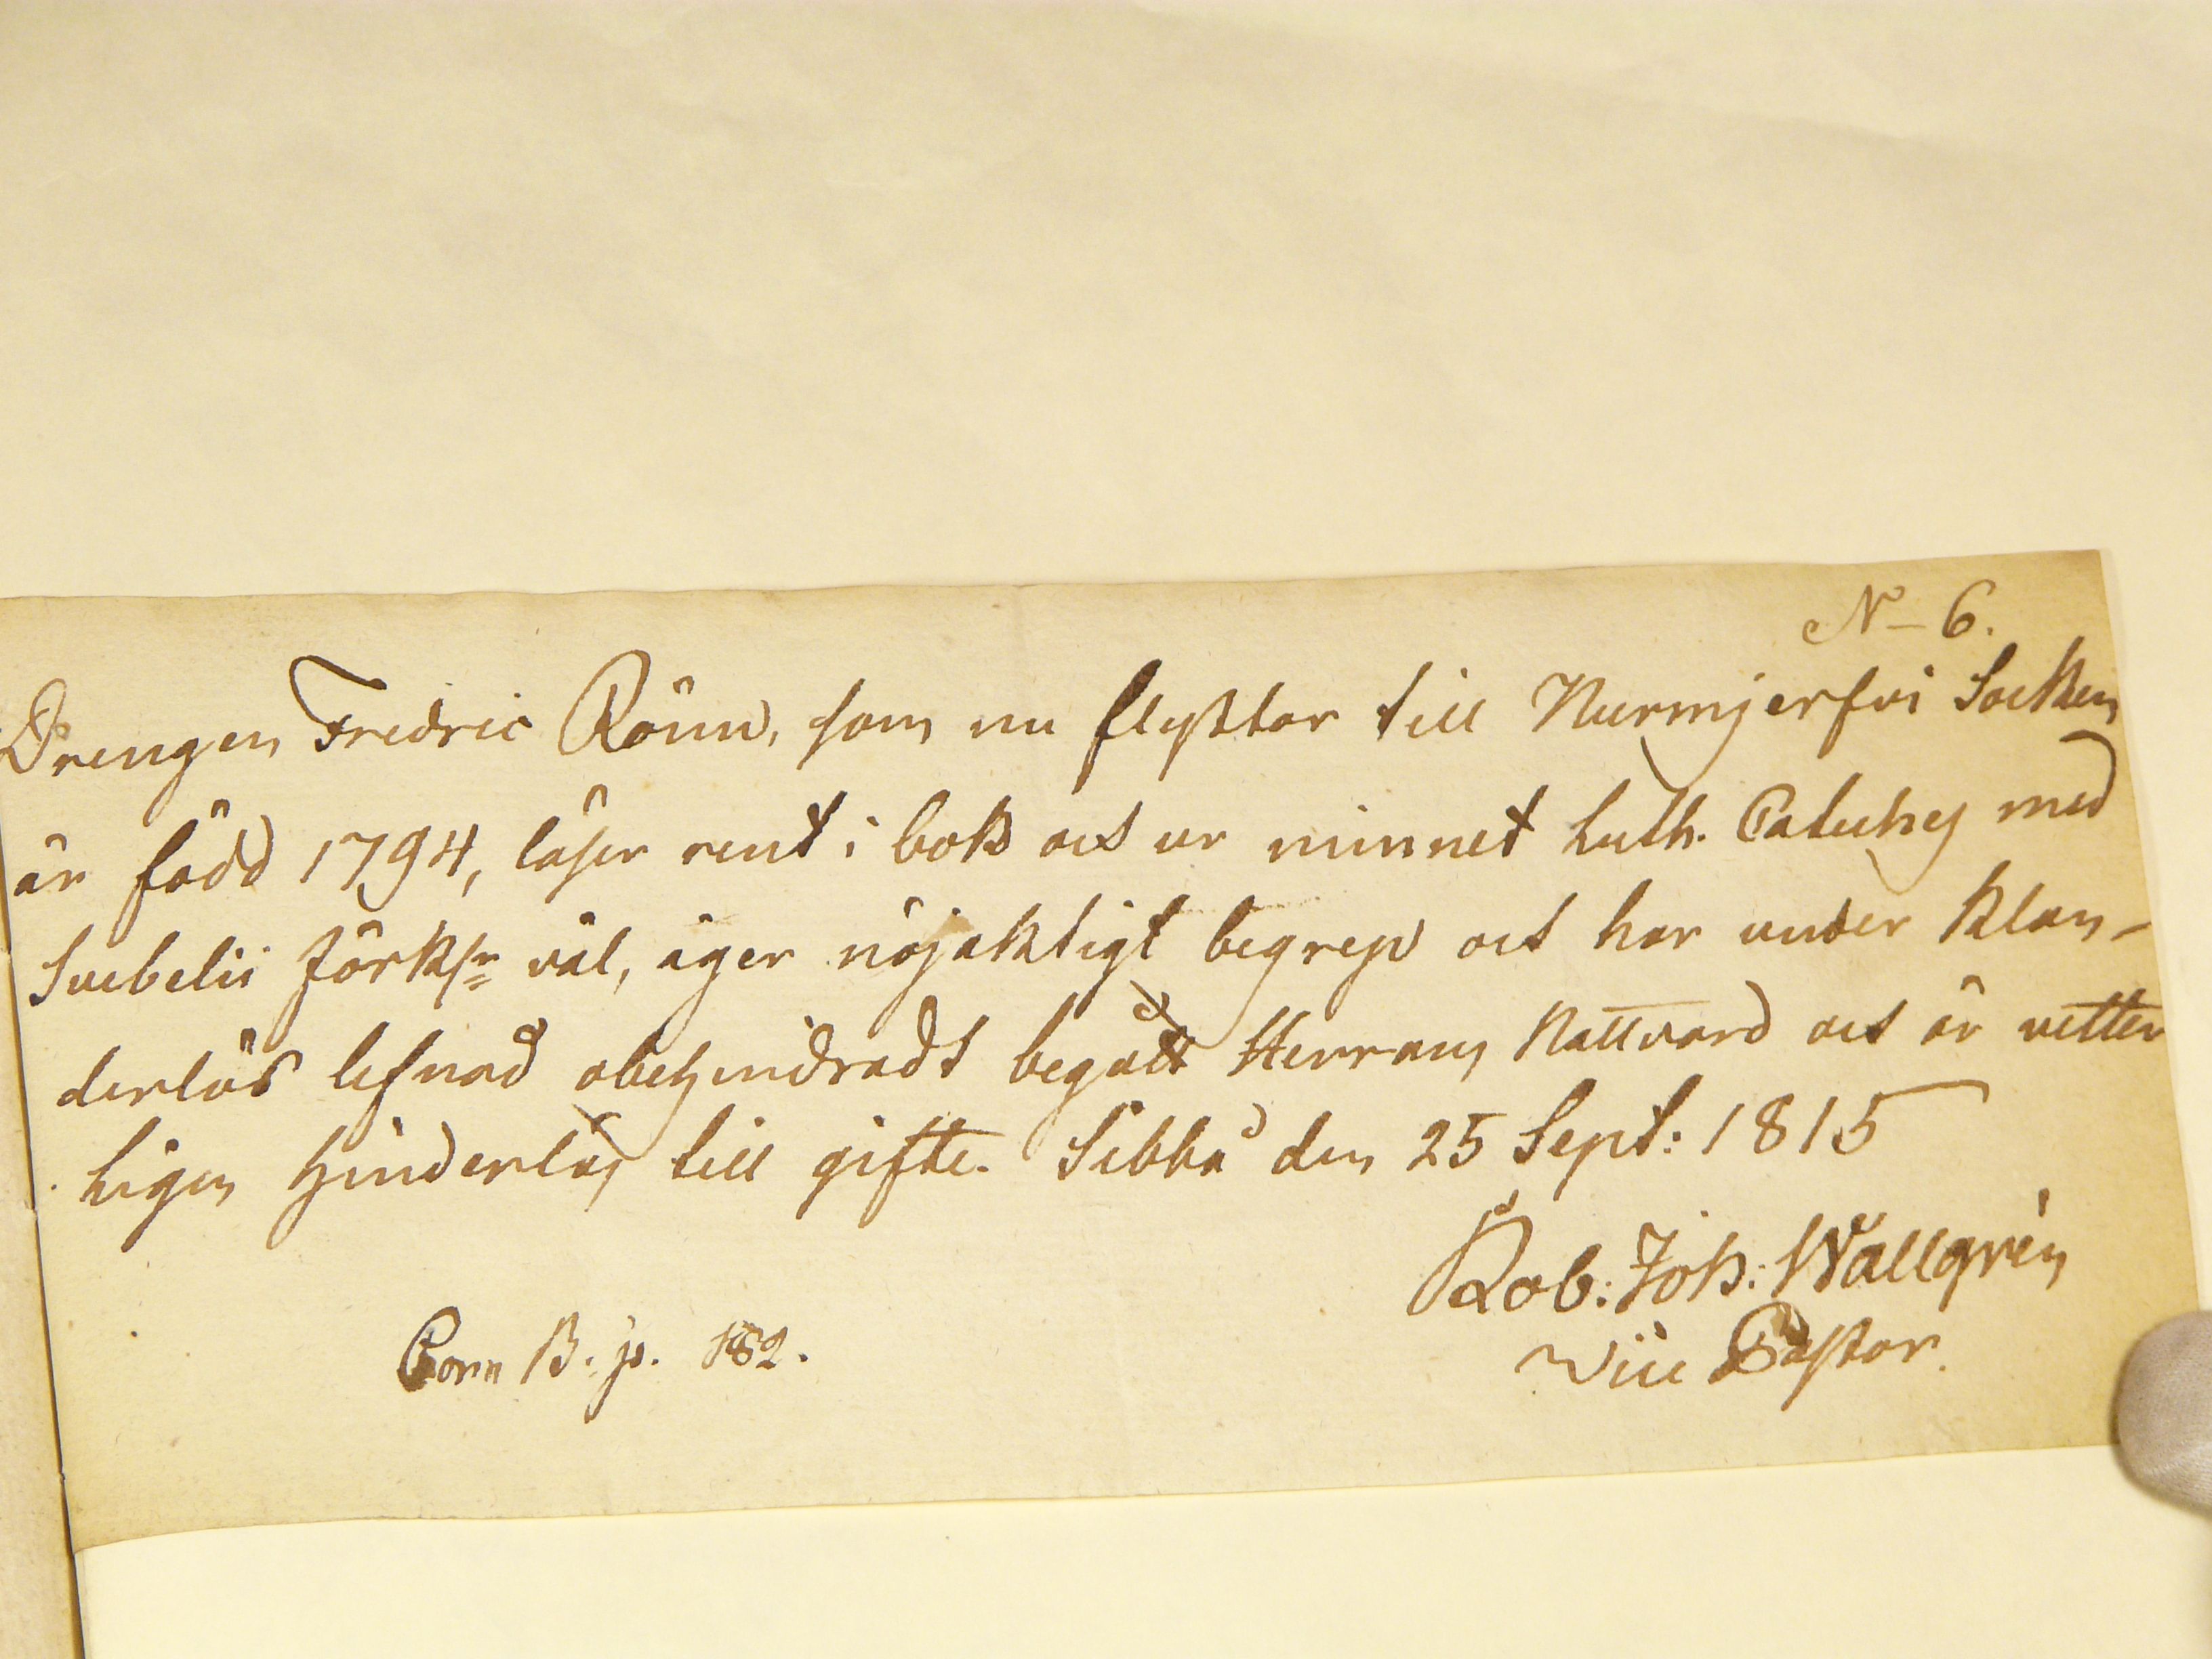 N- 6.
Drengen Fredric Rönn, som nu flyttar till Nurmjerfvi Socken
är född 1794, läser rent i bok och ur minnet Luth. Cateches med
Svebelii förkl:r väl, äger nöjaktigt begrep och har under klan-
derlös lefnad obehindradt begått Herrans Nattvard och är vetter
ligen hinderlös till gifte. Sibbå den 25 Sept: 1815
Rob: Joh: Wallgrén
Vice Pastor.
B. p. 182.